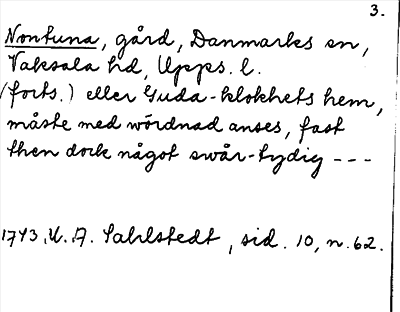 3.
Nontuna, gård, Danmarks sn,
Vaksala hd, Upps. l.
(forts.) eller Guda-klokhets hem,
måste med wördnad anses, fast
then dock något swår-tydig ---
1743. U. A. Sahlstedt, sid. 10, n. 62.